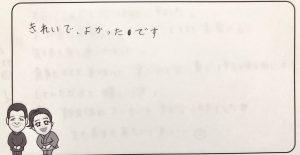 きれいで、よかったです